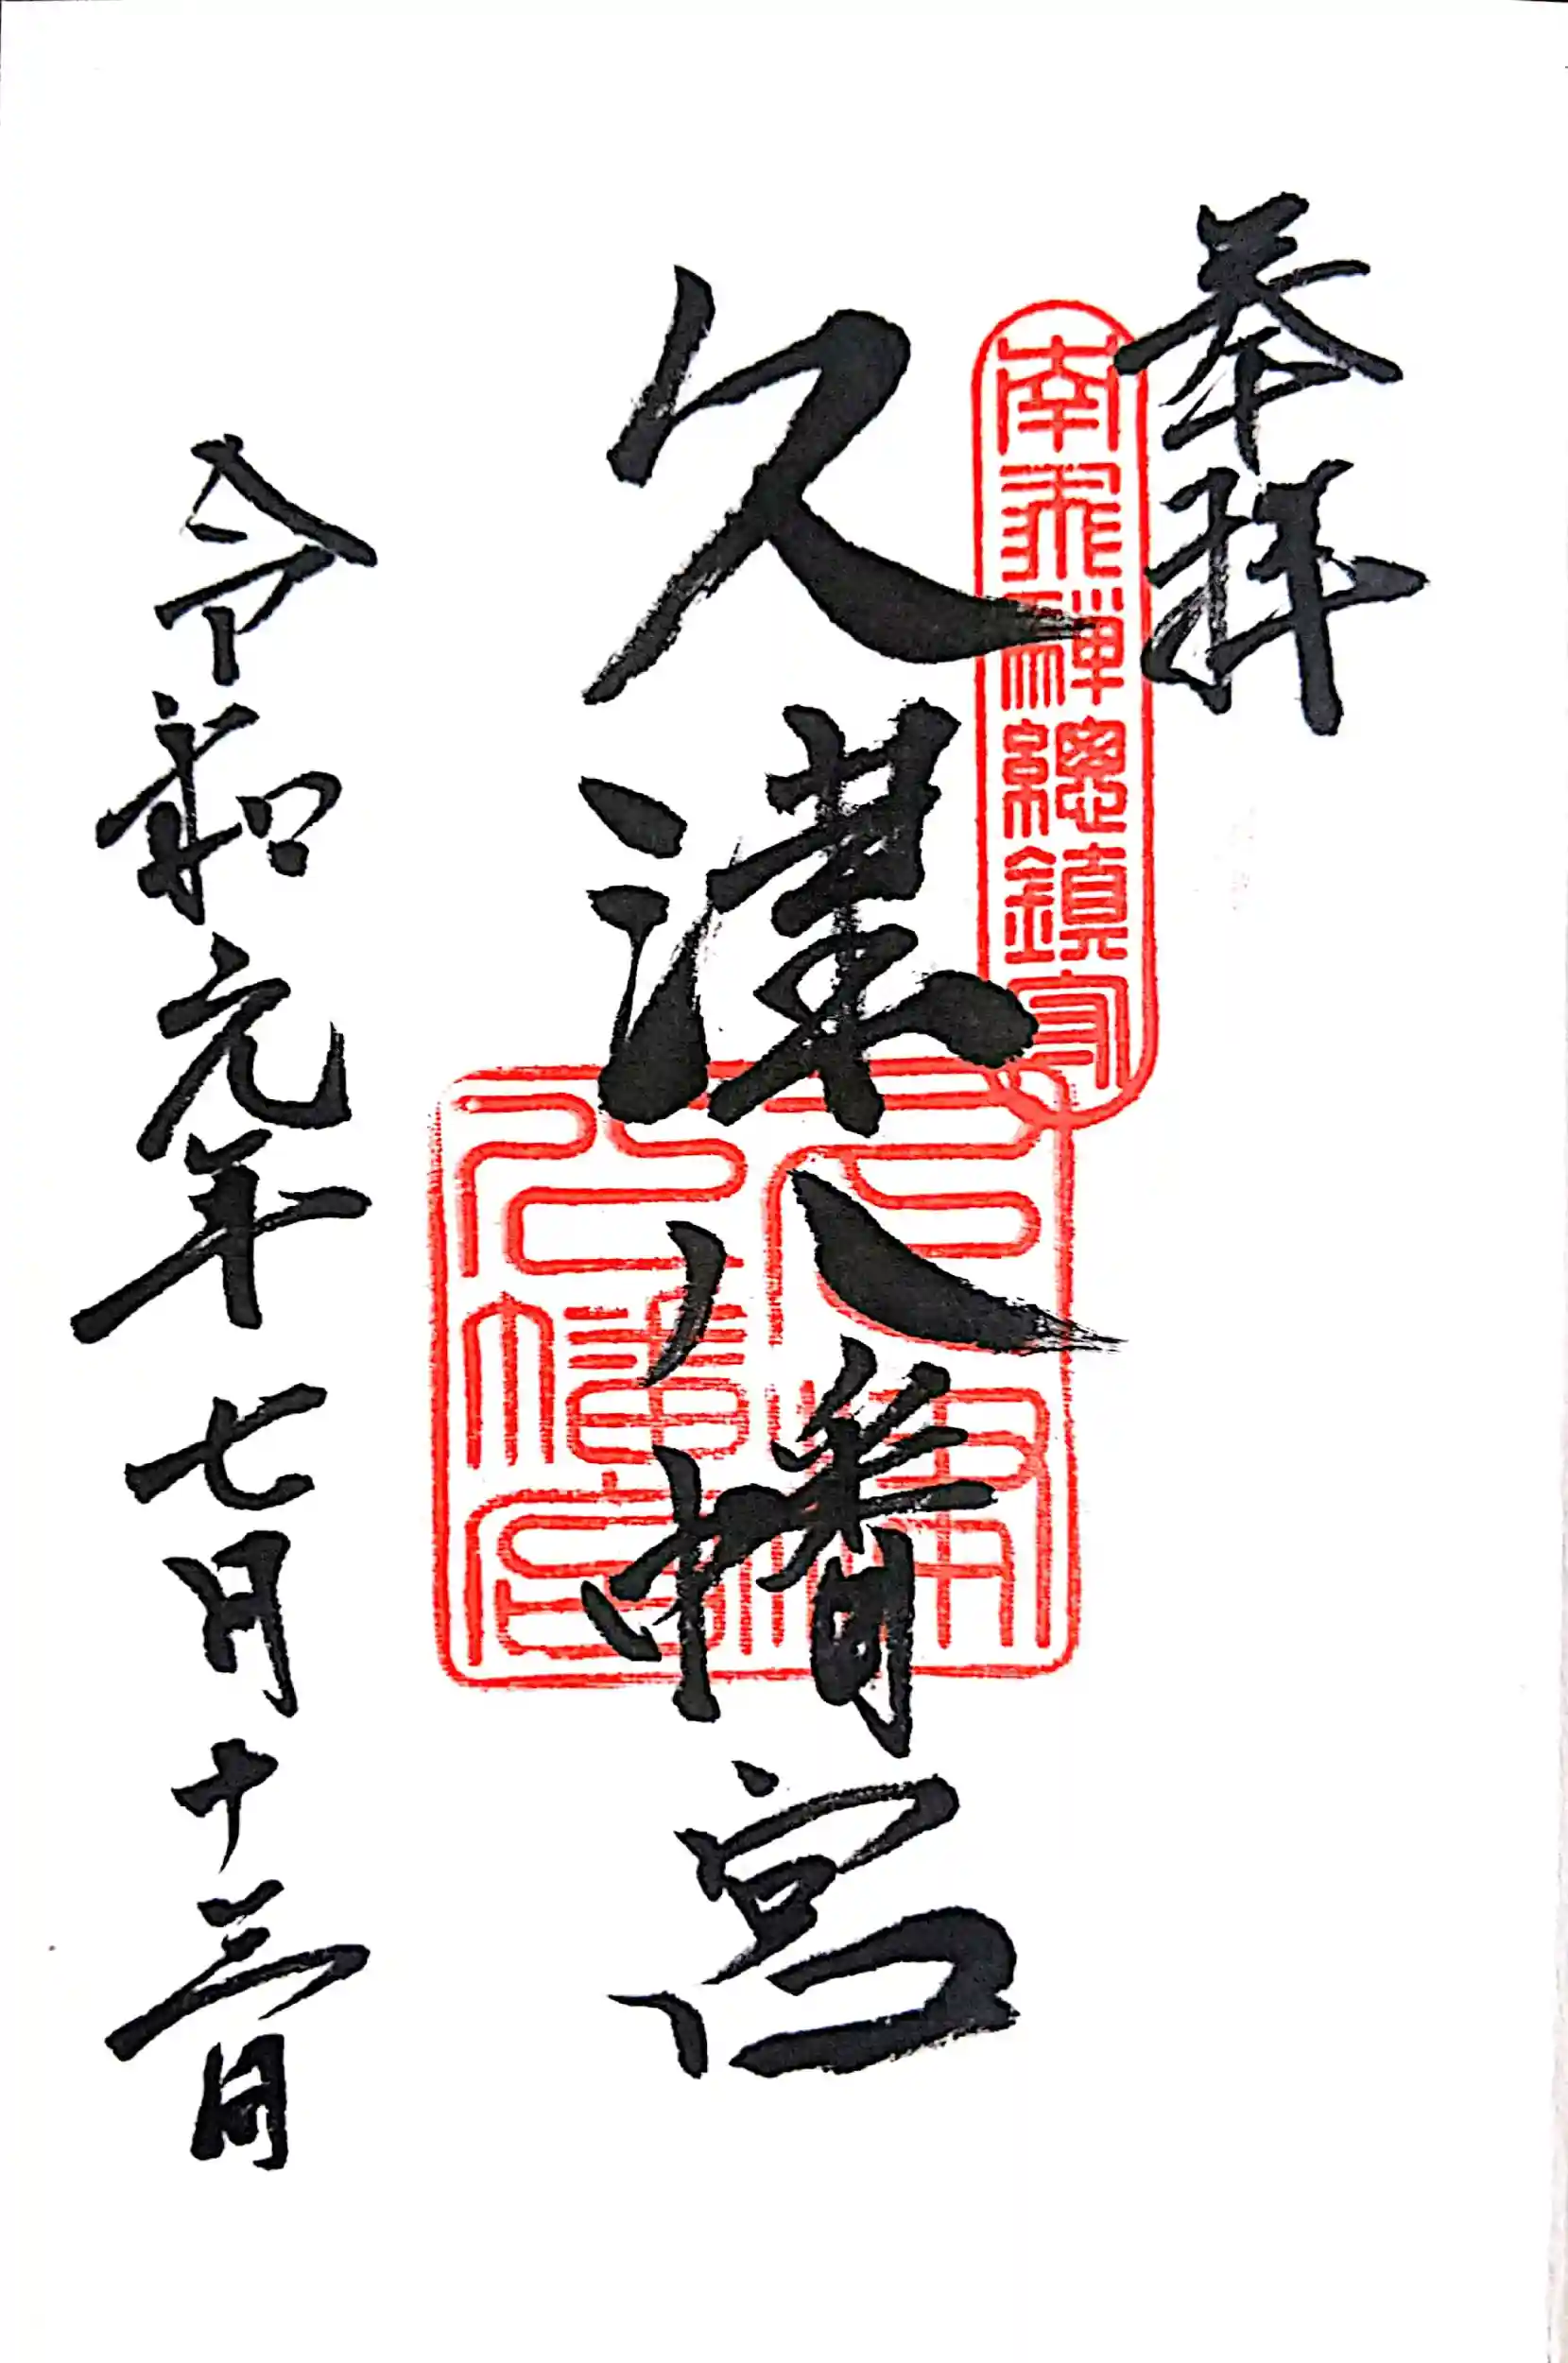 奉拝
南飛騨總鎮守
久津八幡宮
久津八幡宮
令和元年七月十三日